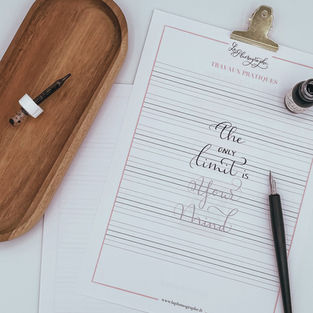 TRAVAUX PRATIQUES
the
ONLY
limit IS
Your
Mind